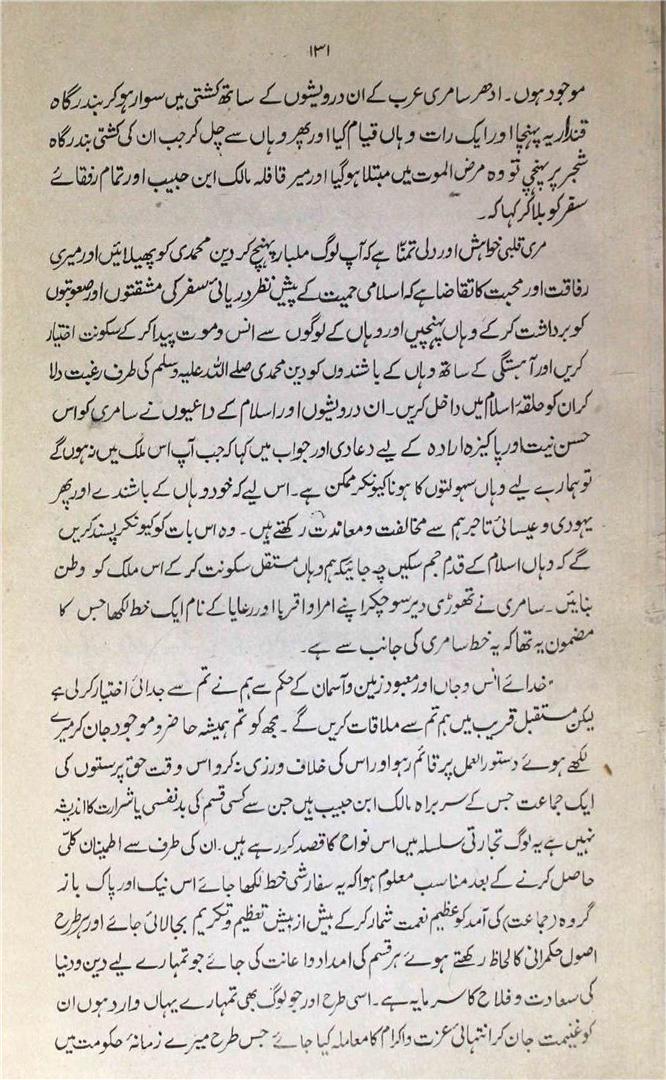 ۱۳۱
موجود ہوں۔ ادھر سامری عرب کے ان درویشوں کے ساتھ کشتی میں سوار ہو کر بندرگاہ
قنداریہ پہنچا اور ایک رات وہاں قیام کیا اور پھر وہاں سے چل کر جب ان کی کشتی بندرگاہ
شجر پر پہنچی تو وہ مرض الموت میں مبتلا ہو گیا اور میر قافلہ مالک ابن حبیب اور تمام رفقائے
سفر کو بلا کر کہا کہ۔
مری قلبی خواہش اور دلی تمنّا ہے کہ آپ لوگ ملیبار پہنچ کر دین محمدی کو پھیلائیں اور میری
رفاقت اور محبت کا تقاضا ہے کہ اسلامی حمیت کے پیش نظر دریائی سفر کی مشقتوں اور صعوبتوں
کو برداشت کر کے وہاں پہنچیں اور وہاں کے لوگوں سے انس و موت پیدا کر کے سکونت اختیار
کریں اور آہستگی کے ساتھ وہاں کے باشندوں کو دین محمدی صلے اللہ علیہ وسلم کی طرف رغبت دلا
کر ان کو حلقۂ اسلام میں داخل کریں۔ ان درویشوں اور اسلام کے داعیوں نے سامری کو اس
حسن نیت اور پاکیزہ ارادہ کے لیے دعا دی اور جواب میں کہا کہ جب آپ اس ملک میں نہ ہوں گے
تو ہمارے لیے وہاں سہولتوں کا ہونا کیونکر ممکن ہے۔ اس لیے کہ خود وہاں کے باشندے اور پھر
یہودی و عیسائی تاجر ہم سے مخالفت و معاندت رکھتے ہیں۔ وہ اس بات کو کیونکر پسند کریں
گے کہ وہاں اسلام کے قدم جم سکیں چہ جائیکہ ہم وہاں مستقل سکونت کر کے اس ملک کو وطن
بنائیں۔ سامری نے تھوڑی دیر سوچ کر اپنے امرا و اقربا اور رعایا کے نام ایک خط لکھا جس کا
مضمون یہ تھا کہ یہ خط سامری کی جانب سے ہے۔
"خدائے انس و جاں اور معبود زمین و آسمان کے حکم سے ہم نے تم سے جدائی اختیار کر لی ہے
لیکن مستقبل قریب میں ہم تم سے ملاقات کریں گے۔ مجھ کو تم ہمیشہ حاضر و موجود جان کر میرے
لکھے ہوئے دستور العمل پر قائم رہو اور اس کی خلاف ورزی نہ کرو اس وقت حق پرستوں کی
ایک جماعت جس کے سربراہ مالک ابن حبیب ہیں جن سے کسی قسم کی بدنفسی یا شرارت کا اندیشہ
نہیں ہے یہ لوگ تجارتی سلسلہ میں اس نواح کا قصد کر رہے ہیں۔ ان کی طرف سے اطمینان کلّی
حاصل کرنے کے بعد مناسب معلوم ہوا کہ یہ سفارشی خط لکھا جائے اس نیک اور پاک باز
گروہ (جماعت) کی آمد کو عظیم نعمت شمار کر کے بیش از بیش تعظیم و تکریم بجا لائی جائے اور ہر طرح
اصول حکمرانی کا لحاظ رکھتے ہوئے ہر قسم کی امداد و اعانت کی جائے جو تمہارے لیے دین و دنیا
کی سعادت و فلاح کا سرمایہ ہے۔ اسی طرح اور جو لوگ بھی تمہارے یہاں وارد ہوں ان
کو غنیمت جان کر انتہائی عزت و اکرام کا معاملہ کیا جائے جس طرح میرے زمانۂ حکومت میں